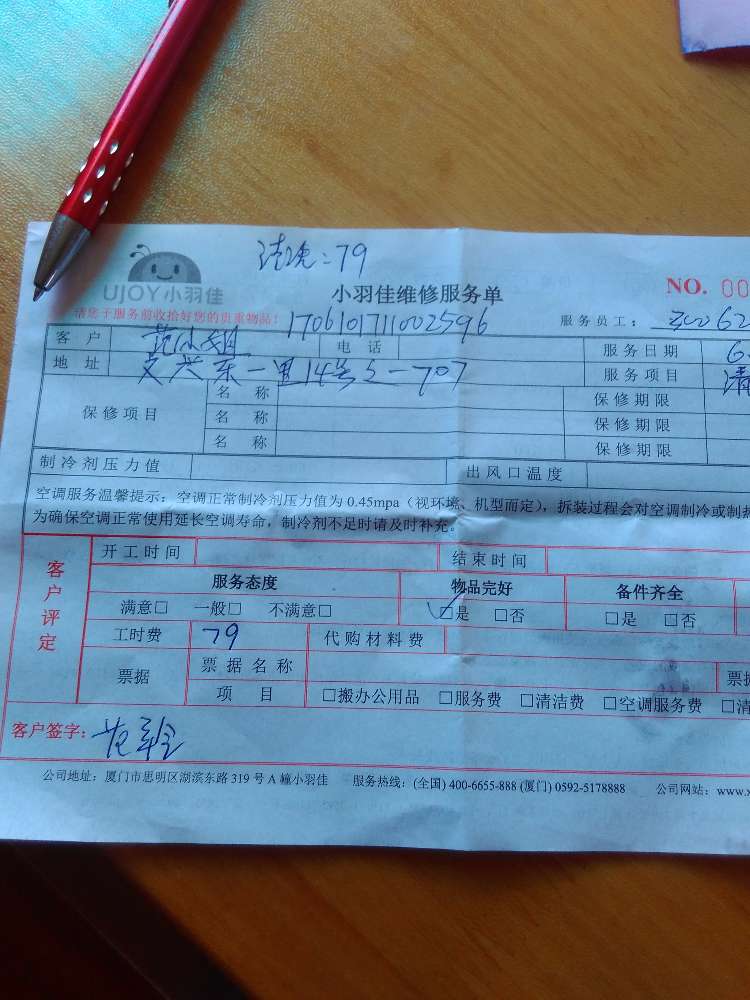 :79
UJOY小羽佳
小羽佳维修服务单
NO. 00
请您于服务前收拾好您的贵重物品!
1706101711002596
服务员工:
客户 范小姐 电话 服务日期 6.
地址 东一里14号之一707 服务项目 清
保修项目 名称 保修期限
名称 保修期限
名称 保修期限
制冷剂压力值 出风口温度
空调服务温馨提示:空调正常制冷剂压力值为 0.45mpa(视环境、机型而定),拆装过程会对空调制冷或制热
为确保空调正常使用延长空调寿命,制冷剂不足时请及时补充。
客户评定
开工时间 结束时间
服务态度 物品完好 备件齐全
满意□ 一般□ 不满意□ ☑是 □否 □是 □否
工时费 79 代购材料费
票据 票据名称 票据
项目 □搬办公用品 □服务费 □清洁费 □空调服务费 □清
客户签字: 范
公司地址:厦门市思明区湖滨东路 319 号 A 幢小羽佳 服务热线:(全国) 400-6655-888 (厦门) 0592-5178888 公司网站:www.x